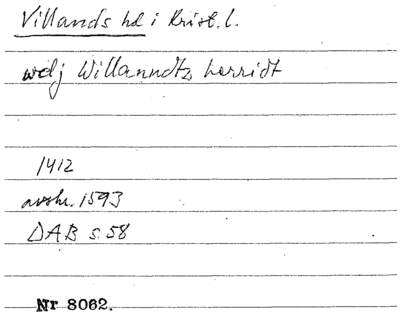 Villands hd i Krist. l.
wdj Willanndtz herridt
1412
avskr. 1593
DAB s. 58
Nr 8062.